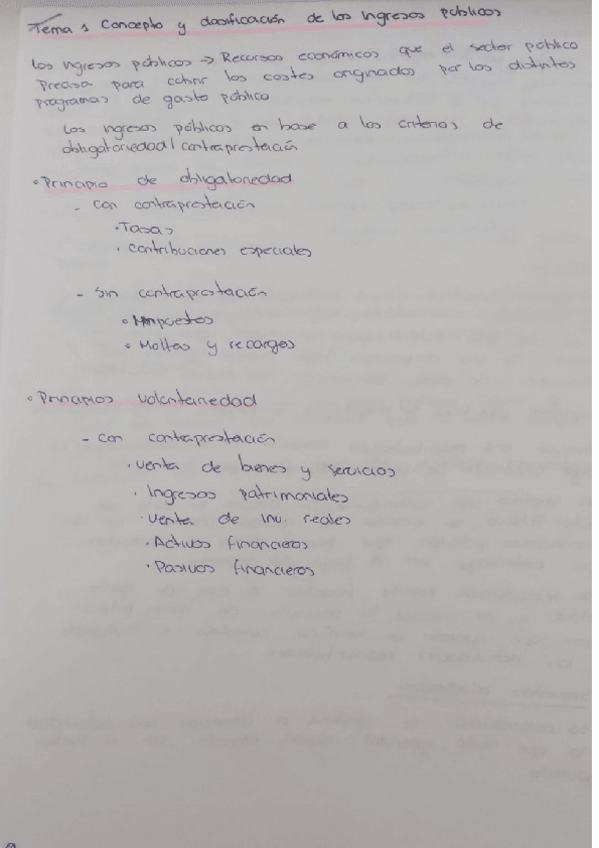 Tema 5 Concepto y clasificación de los ingresos públicos
Los ingresos públicos → Recursos económicos que el sector público
Precisa para cubrir los costes originados por los distintos
programas de gasto público
Los ingresos públicos en base a los criterios de
obligatoriedad / contraprestación
• Principio de obligatoriedad
- con contraprestación
• Tasas
• contribuciones especiales
- Sin contraprestación
• Impuestos
• Multas y recargos
• Principios voluntariedad
- con contraprestación
• Venta de bienes y servicios
• Ingresos patrimoniales
• Venta de inv. reales
• Activos financieros
• Pasivos financieros